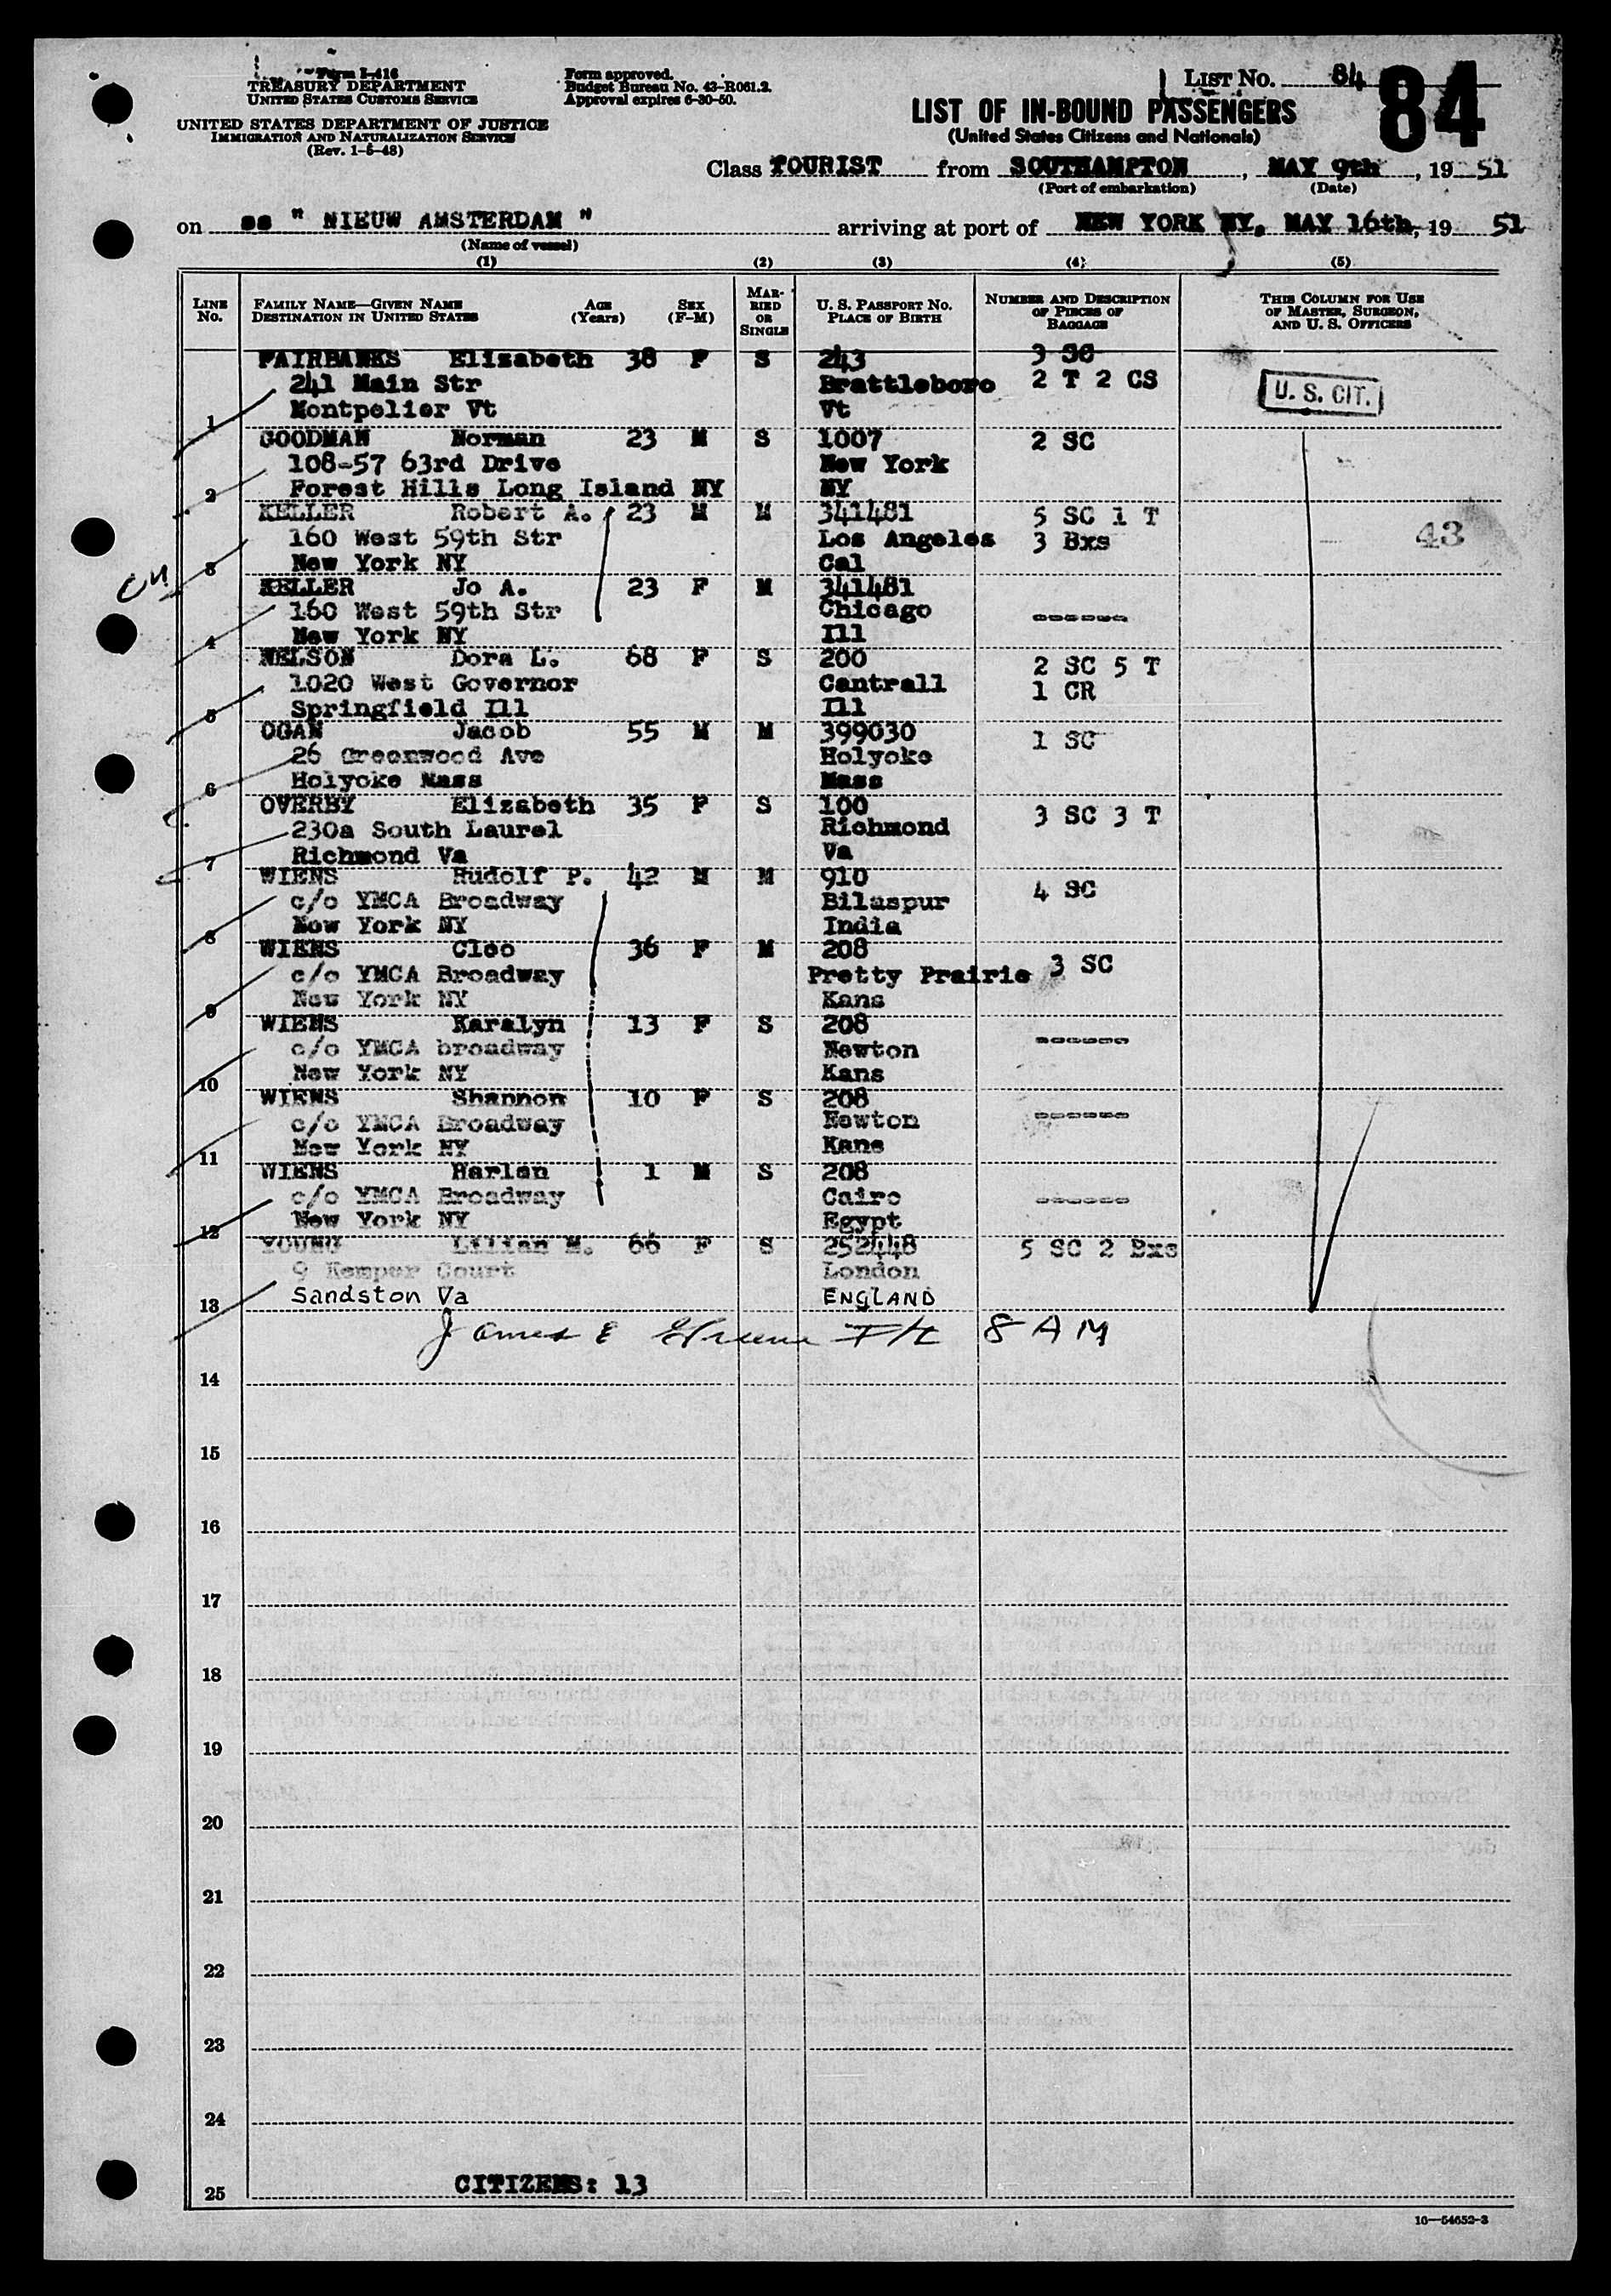 Form I-416
TREASURY DEPARTMENT
UNITED STATES CUSTOMS SERVICE
UNITED STATES DEPARTMENT OF JUSTICE
IMMIGRATION AND NATURALIZATION SERVICE
(Rev. 1-5-48)
Form approved.
Budget Bureau No. 43-R061.2.
Approval expires 6-30-50.
LIST NO. 84
84
LIST OF IN-BOUND PASSENGERS
(United States Citizens and Nationals)
Class TOURIST from SOUTHAMPTON, MAY 9th, 19 51
(Port of embarkation) (Date)
on ss " NIEUW AMSTERDAM " arriving at port of NEW YORK NY, MAY 16th, 19 51
(Name of vessel)
(1) (2) (3) (4) (5)
LINE NO. FAMILY NAME—GIVEN NAME DESTINATION IN UNITED STATES AGE (Years) SEX (F-M) MARRIED OR SINGLE U. S. PASSPORT NO. PLACE OF BIRTH NUMBER AND DESCRIPTION OF PIECES OF BAGGAGE THIS COLUMN FOR USE OF MASTER, SURGEON, AND U. S. OFFICERS
FAIRBANKS Elizabeth 38 F S 243 3 SC
241 Main Str Brattleboro 2 T 2 CS U. S. CIT.
1 Montpelier Vt Vt
GOODMAN Norman 23 M S 1007 2 SC
108-57 63rd Drive New York
2 Forest Hills Long Island NY NY
KELLER Robert A. 23 M M 341481 5 SC 1 T
160 West 59th Str Los Angeles 3 Bxs 43
3 New York NY Cal
KELLER Jo A. 23 F M 341481
160 West 59th Str Chicago ------
4 New York NY Ill
NELSON Dora L. 68 F S 200 2 SC 5 T
1020 West Governor Cantrall 1 CR
5 Springfield Ill Ill
OGAN Jacob 55 M M 399030 1 SC
26 Greenwood Ave Holyoke
6 Holyoke Mass Mass
OVERBY Elizabeth 35 F S 100 3 SC 3 T
230a South Laurel Richmond
7 Richmond Va Va
WIENS Rudolf P. 42 M M 910 4 SC
c/o YMCA Broadway Bilaspur
8 New York NY India
WIENS Cleo 36 F M 208 3 SC
c/o YMCA Broadway Pretty Prairie
9 New York NY Kans
WIENS Karalyn 13 F S 208 ------
c/o YMCA broadway Newton
10 New York NY Kans
WIENS Shannon 10 F S 208 ------
c/o YMCA Broadway Newton
11 New York NY Kans
WIENS Harlan 1 M S 208
c/o YMCA Broadway Cairo ------
12 New York NY Egypt
YOUNG Lilian M. 66 F S 252448 5 SC 2 Bxs
9 Kemper Court London
13 Sandston Va ENGLAND
James E Greene 8 AM
14
15
16
17
18
19
20
21
22
23
24
25 CITIZENS: 13
16—54652-3